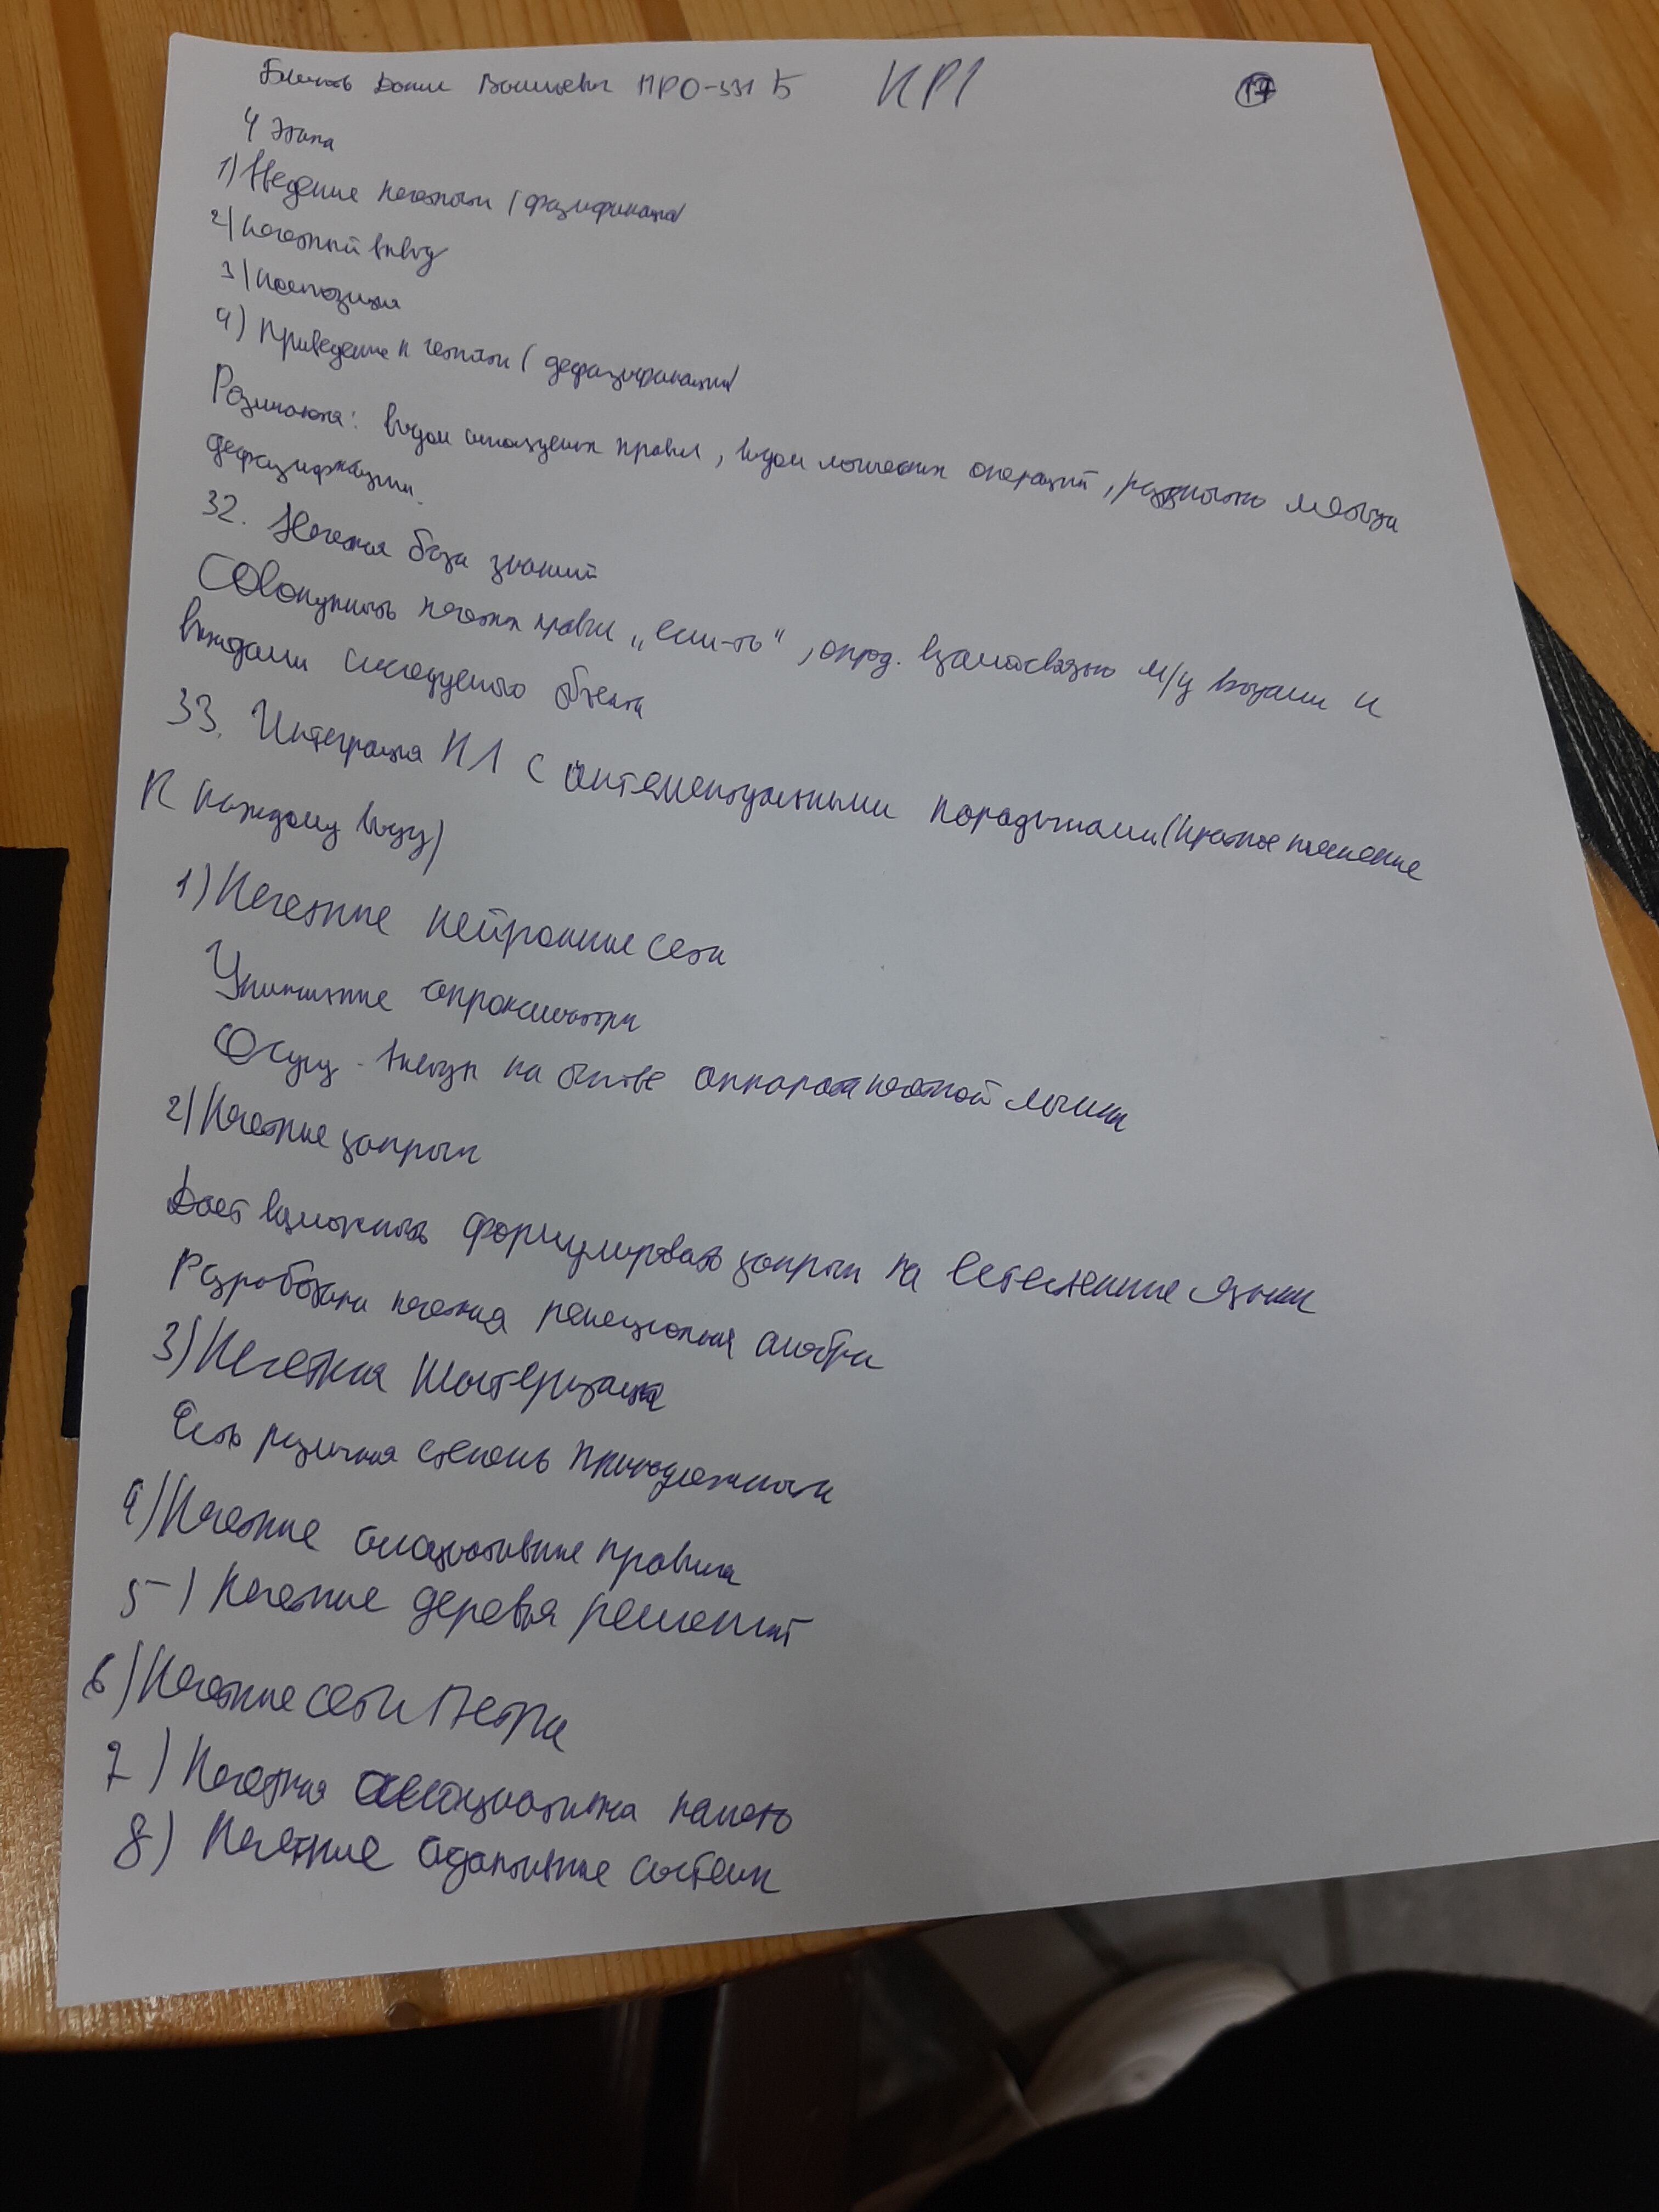 ПРО-331 Б КР1 17
4 Этапа
1) Введение нечеткости (фазификация)
2) Нечеткий вывод
3) Композиция
4) Приведение к четкости (дефазификация)
Различаются: видом используемых правил, видом логических операций, разновидностью метода
дефазификации.
32. Нечеткая база знаний
Совокупность нечетких правил „если-то“, опред. взаимосвязь м/у входами и
выходами исследуемого объекта
33. Интеграция НЛ с интеллектуальными парадигмами (Краткое пояснение
к каждому виду)
1) Нечеткие нейронные сети
апроксиматоры
Осущ. выводы на основе аппарата нечеткой логики
2) Нечеткие запросы
Дает возможность формулировать запросы на естественные языки
Разработана нечеткая реляционная алгебра
3) Нечеткая кластеризация
Есть различная степень принадлежности
4) Нечеткие ассоциативные правила
5) Нечеткие деревья решений
6) Нечеткие сети Петри
7) Нечеткая ассоциативная память
8) Нечеткие адаптивные системы